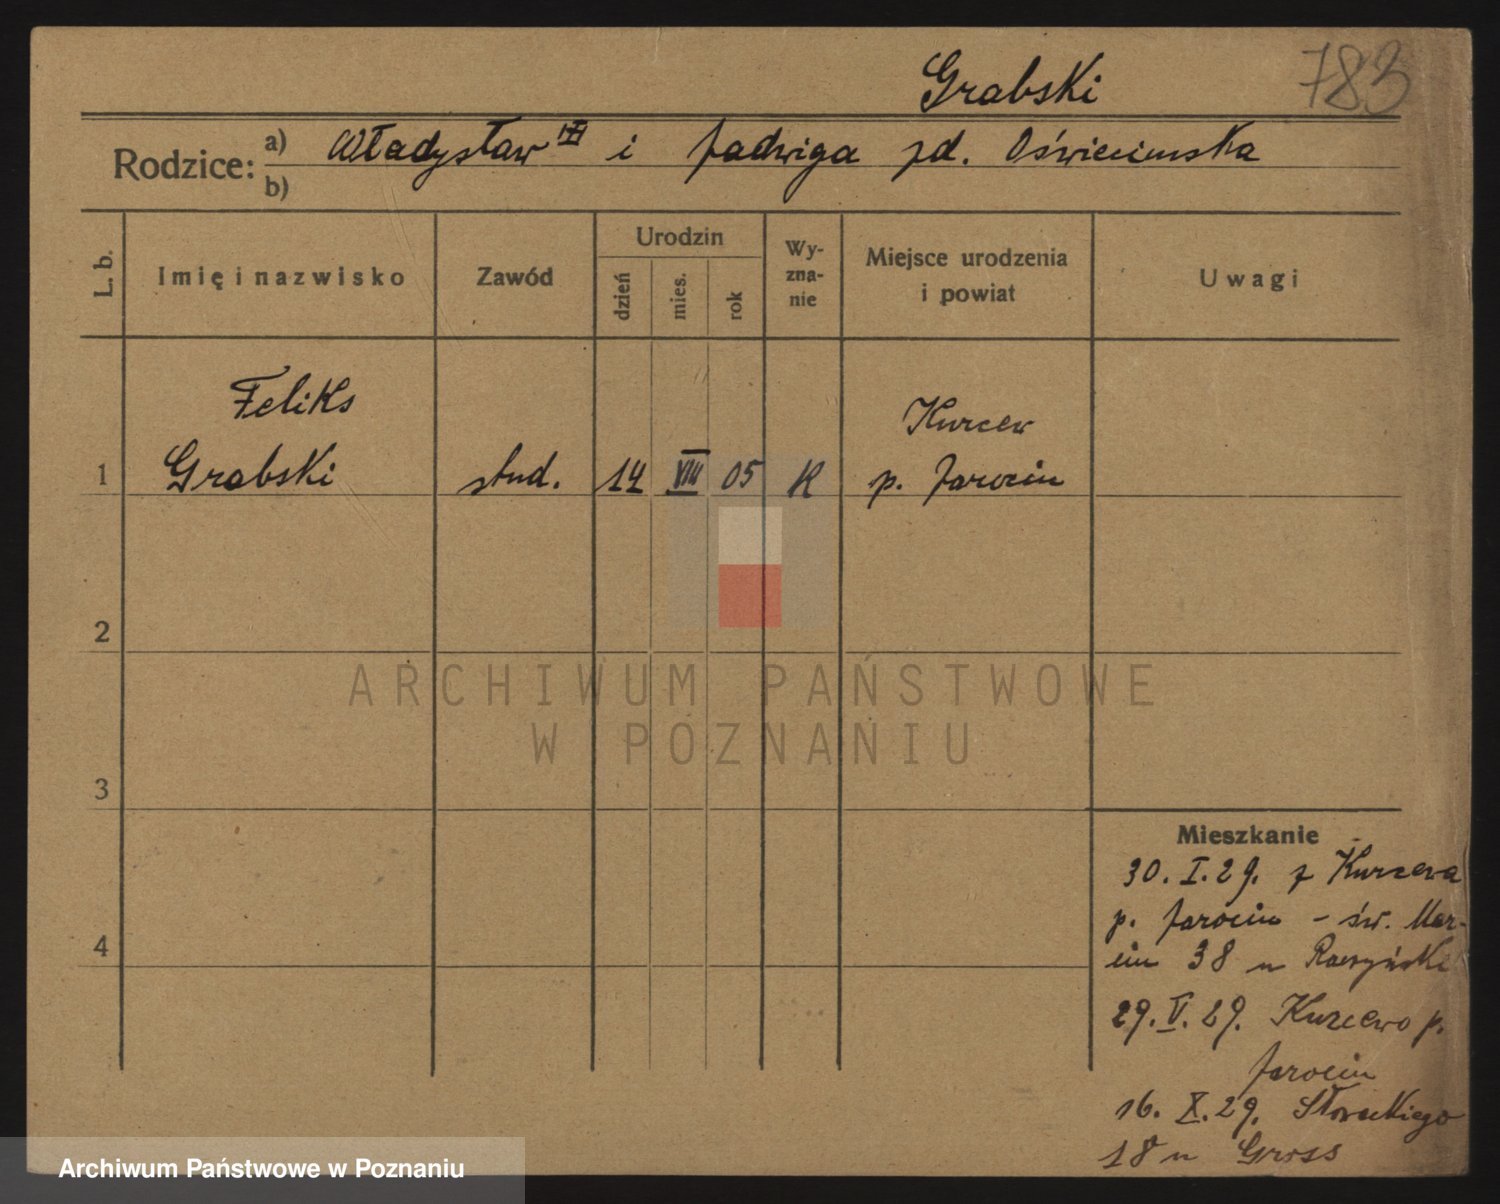 Grabski 783
Rodzice: a) Władysław i Jadwiga zd. Oświecimska
b)
L. b.
Imię i nazwisko
Zawód
Urodzin
dzień
mies.
rok
Wy-
zna-
nie
Miejsce urodzenia
i powiat
Uwagi
Feliks
Kurcew
1 Grabski stud. 14 VIII 05 K p. Jarocin
2
ARCHIWUM PAŃSTWOWE
W POZNANIU
3
4
Mieszkanie
30. I. 29. z Kurcewa
p. Jarocin - św. Mar-
cin 38 u Raczyński
29. V. 29. Kurcewo p.
Jarocin
16. X. 29. Słowackiego
18 u Gross
Archiwum Państwowe w Poznaniu